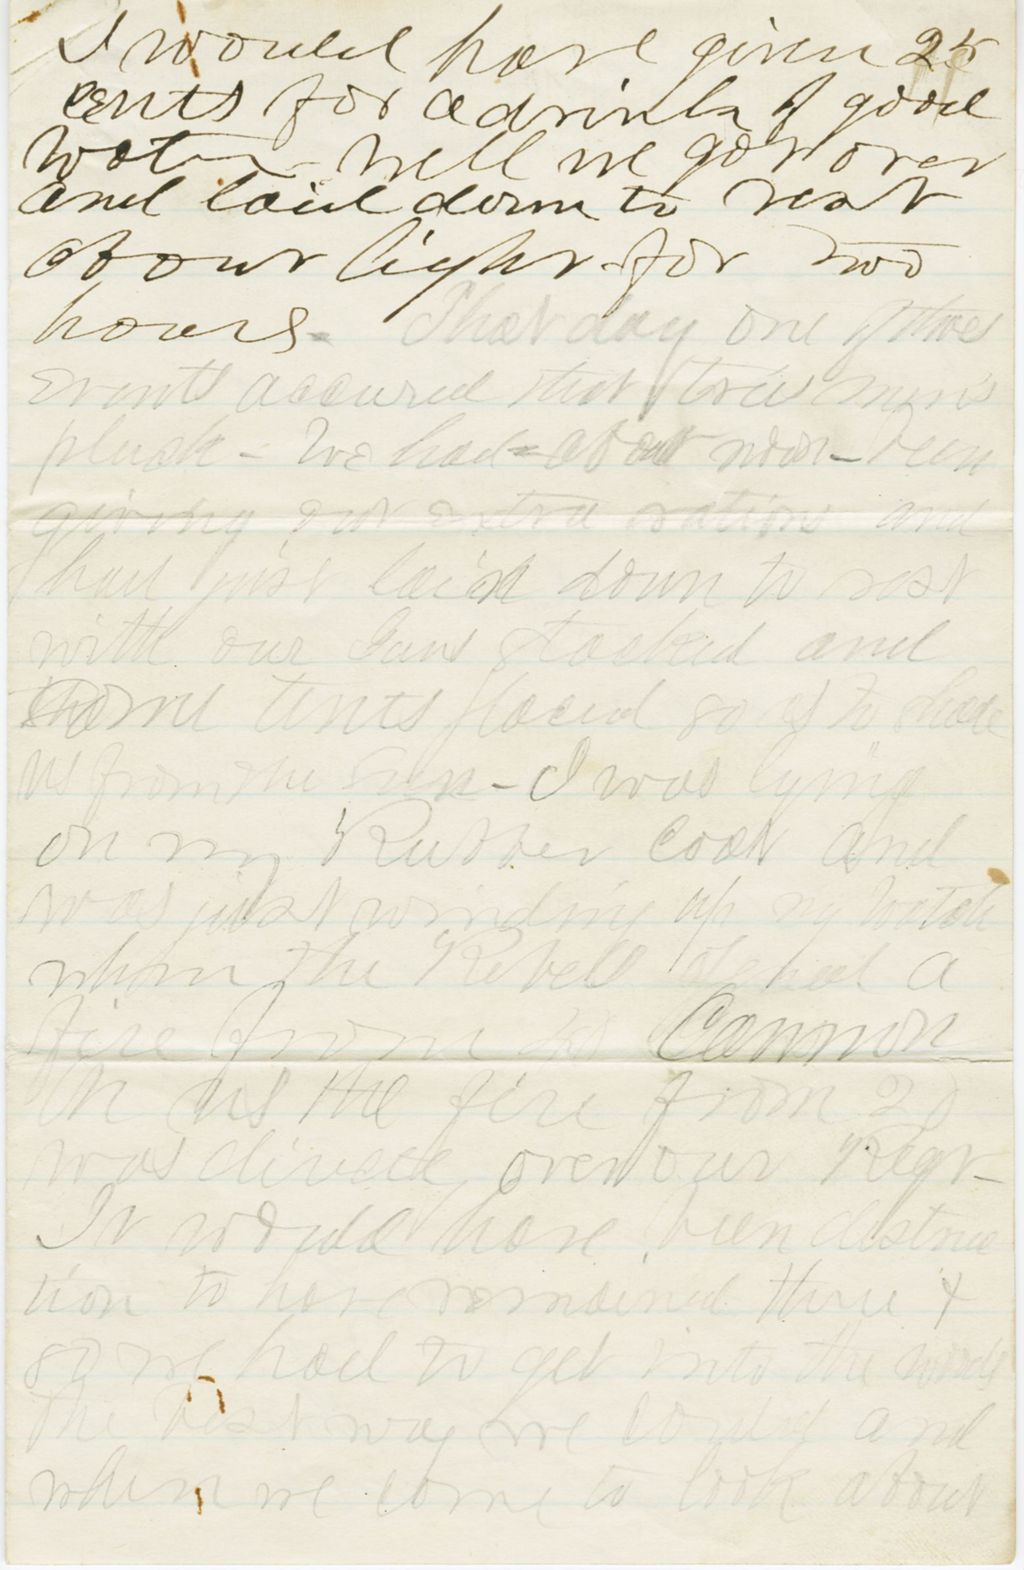 I would have given 25
cents for a drink of good
water - well we got over
and laid down to rest
about light for two
hours. That day one of thoes
events accured that tries men's
pluck - We had about noon - been
giving out extra rations and
had just laid down to rest
with our Guns stacked and
some tents placed so as to shade
us from the Sun - I was lying
on my Rubber coat and
was just winding up my watch
when the Rebels opened a
fire from 20 Cannon
on us the fire from 20
was direct over our Regt -
It would have been destruc
tion to have remained there &
so we had to get into the woods
the best way we could and
when we come to look about